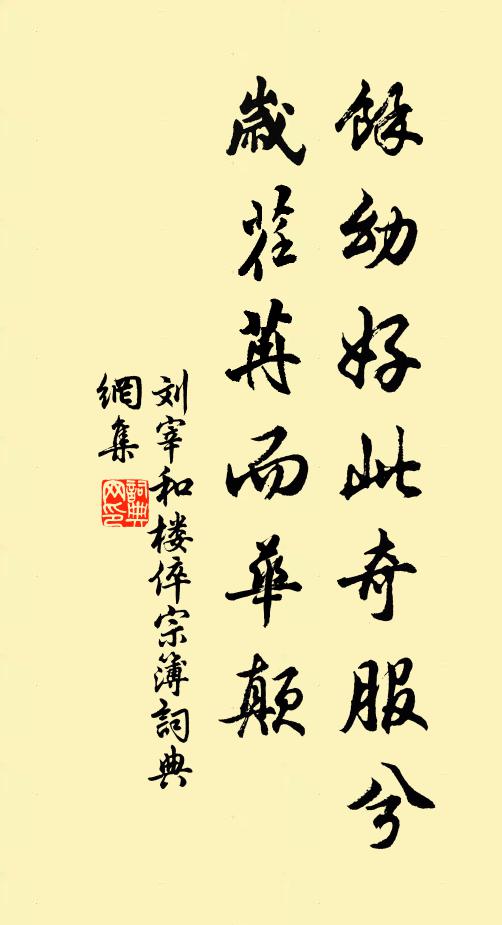 餘幼好此奇服兮
歲荏苒而華颠
刘宰和楼倅宗簿詞典
網集
詞典
网印